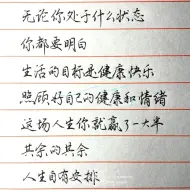 无论你处于什么状态
你都要明白
生活的目标是健康快乐
照顾好自己的健康和情绪
这场人生你就赢了一大半
其余的其余
人生自有安排